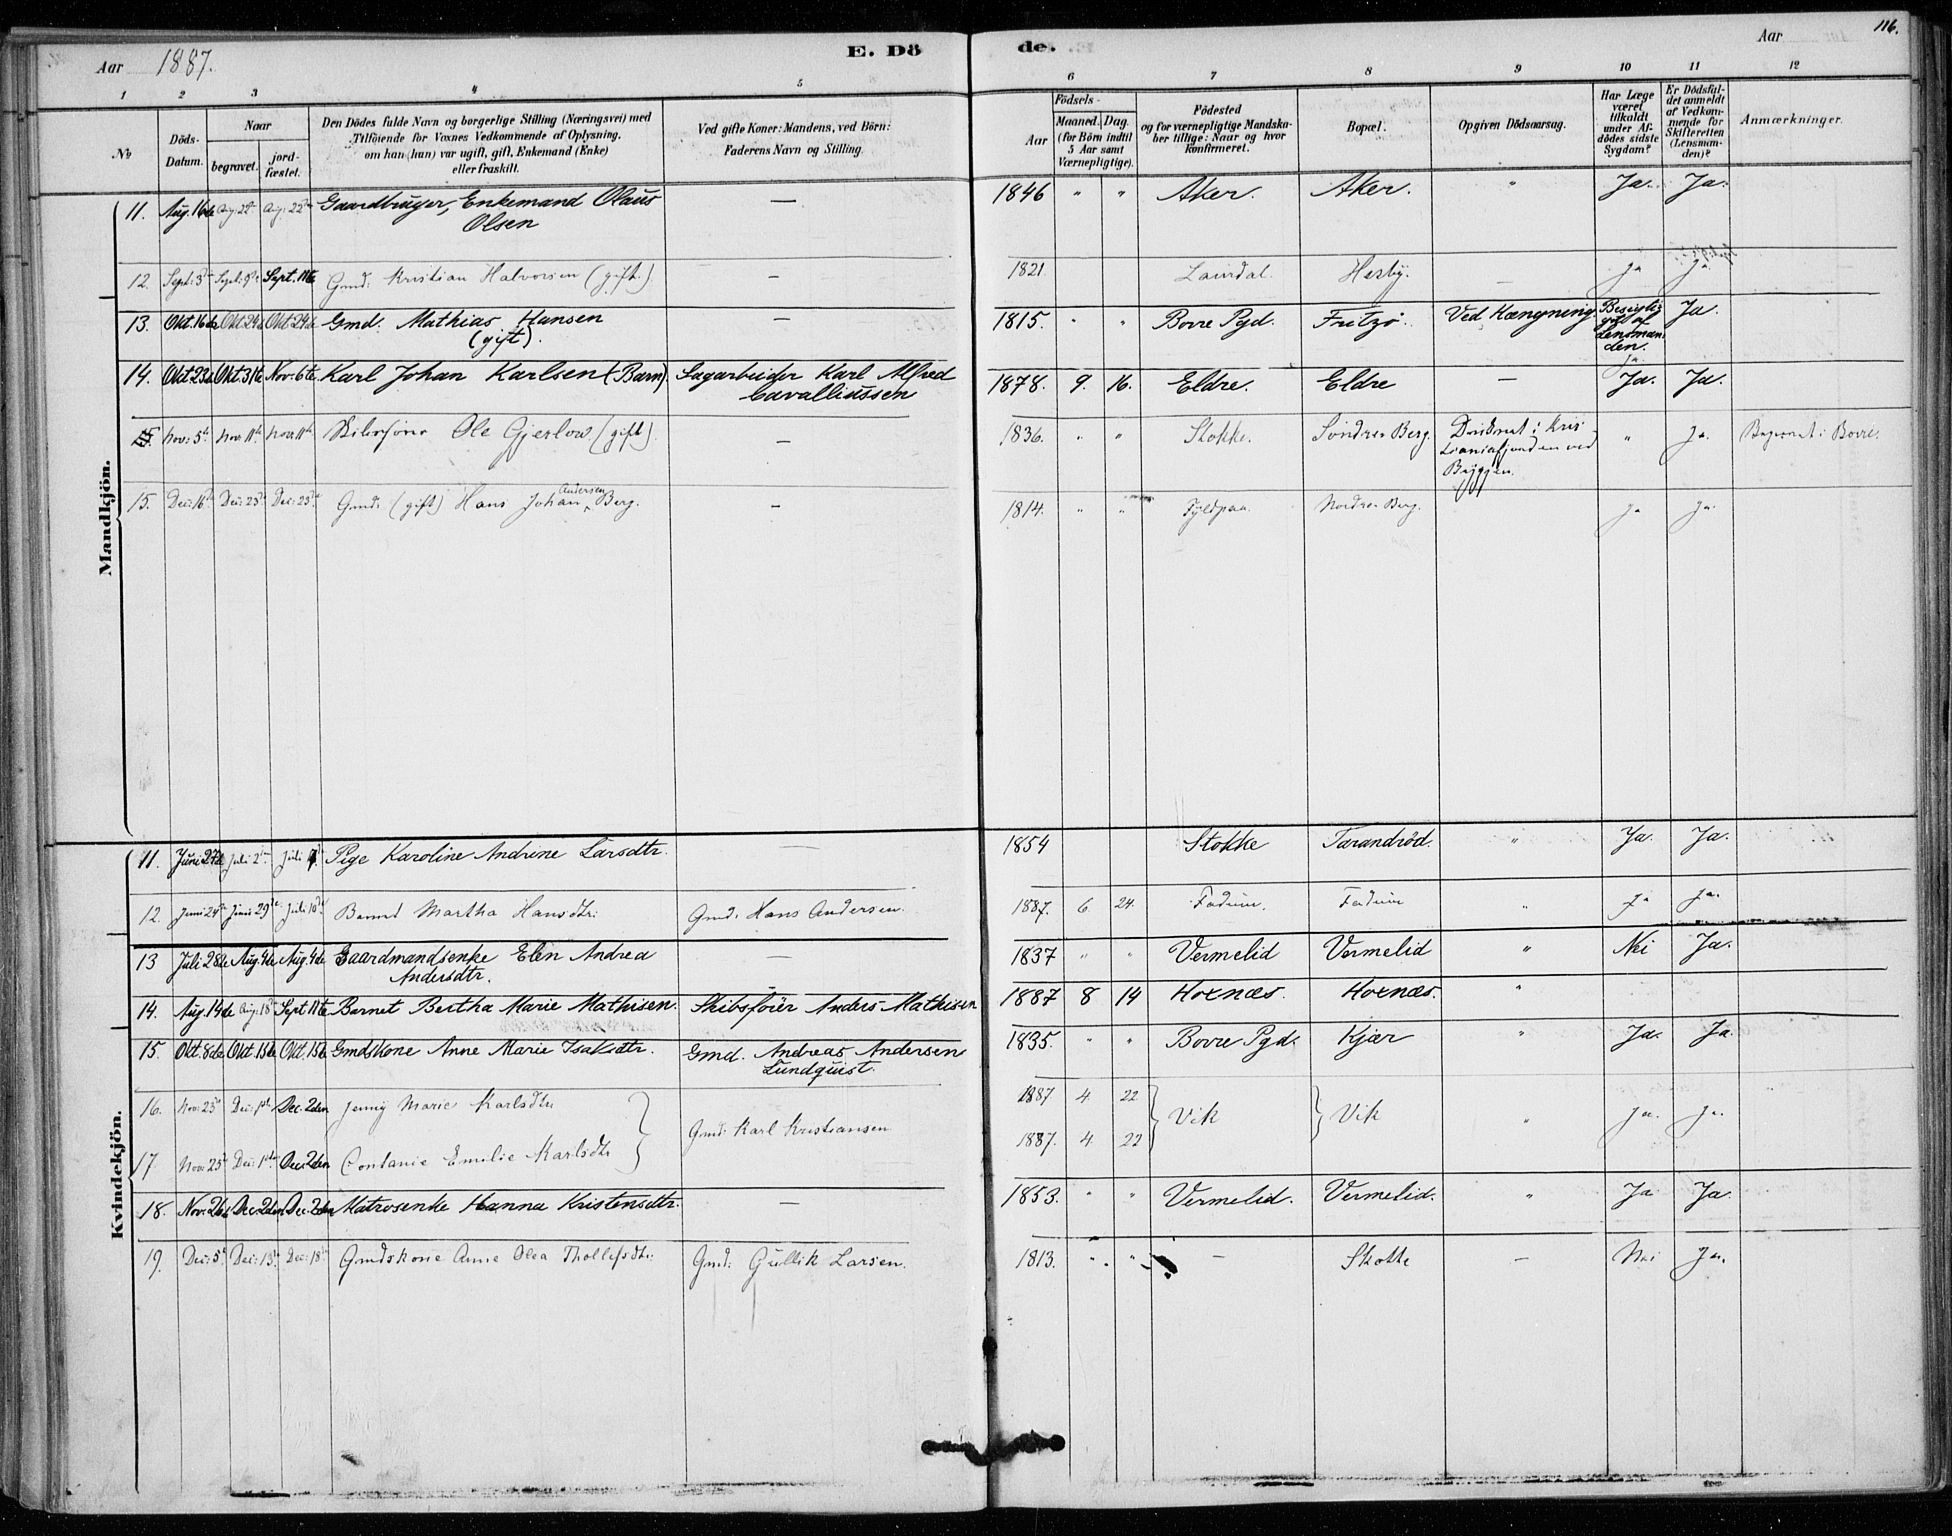 Aar 1887. E. Döde. Aar 116.
1 2 3 4 5 6 7 8 9 10 11 12
No
Döds-Datum.
Naar
begravet.
jord-fæstet.
Den Dödes fulde Navn og borgerlige Stilling (Næringsvei) med
Tilföiende for Voxnes Vedkommende af Oplysning,
om han (hun) var ugift, gift, Enkemand (Enke)
eller fraskilt.
Ved gifte Koner: Mandens, ved Börn:
Faderens Navn og Stilling.
Födsels-
Aar
Maaned. Dag.
(for Börn indtil
5 Aar samt
Værnepligtige).
Födested
og for værnepligtige Mandska-
ber tillige: Naar og hvor
konfirmeret.
Bopæl.
Opgiven Dödsaarsag.
Har Læge
været
tilkaldt
under Af-
dödes sidste
Sygdom?
Er Dödsfal-
det anmeldt
af Vedkom-
mende for
Skifteretten
(Lensman-
den)?
Anmærkninger.
Mandkjön.
11. Aug. 16de Aug. 22de Aug. 22de Gaardbruger, Enkemand Olaus — 1846 " " Aker. Aker. " Ja. Ja.
Olsen
12. Sept: 3de Sept: 9de Sept. 11te Gmd. Kristian Halvorsen (gift.) — 1821 Laurdal. Hesby. — Ja Ja
13. Okt. 16de Okt 24de Okt 24de Gmd. Mathias Hansen — 1815. " " Borre Pgd. Fritzø. Ved Hængning. Besigtig- Ja.
(gift).
get af
Lensman-
den.
14. Okt 23de Okt 31te Nov. 6te Karl Johan Karlsen (Barn). Sagarbeider Karl Alfred 1878. 9. 16. Eldre. Eldre — Ja. Ja.
Cavalliussen
Nov: 5te Nov: 11te Nov: 11te Skibsfører Ole Gjerløw (gift) — 1836. " " Stokke. Søndre Berg. Druknet i Kris- " Ja. Begravet i Borre.
tianiafjorden ved
Byggen.
15. Dec: 16de Dec: 23de Dec: 23de Gmd. (gift) Hans Johan Andersen Berg. — 1814. " " Nordre Berg. Ja Ja
Kvindekjön.
11. Juni 27de Juli 2den Juli Pige Karoline Andrine Larsdtr. — 1854 Stokke Tarandrød. " Ja. Ja.
12. Juni 24de Juni 29de Juli 10de Barnet Martha Hansdtr. Gmd. Hans Andersen. 1887. 6 24. Fadum. Fadum " Ja Ja.
13 Juli 28de Aug. 4de Aug. 4de Gaardmandsenke Elen Andrea — 1837 " " Vermelid Vermelid " Nei Ja.
Andersdtr.
14. Aug. 14de Aug. 18de Sept 11te Barnet Bertha Marie Mathisen. Skibsfører Anders Mathisen 1887 8 14 Hoxnæs. Hoxnæs. "
15. Okt. 8de Okt 15de Okt. 15de Gmdskone Anne Marie Isaksdtr. Gmd. Andreas Andersen 1835. " " Borre Pgd. Kjær " Ja. Ja
Lundquist.
16. Nov: 23de Dec: 1ste Dec. 2den Jenny Marie Karlsdtr 1887 4 22
Gmd. Karl Kristiansen Vik Vik " Ja. Ja.
17 Nov: 25de Dec: 1ste Dec. 2den Constanie Emilie Karlsdtr 1887. 4 22
18. Nov. 26de Dec. 2den Dec. 2den Matrosenke Hanna Kristensdtr. — 1853. " " Vermelid. Vermelid. " Ja Ja
19. Dec: 5te Dec: 13de Dec: 18de Gmdskone Anne Olea Thollefsdtr. Gmd. Gullik Larsen. 1813. " " — Skotte — Nei Ja.